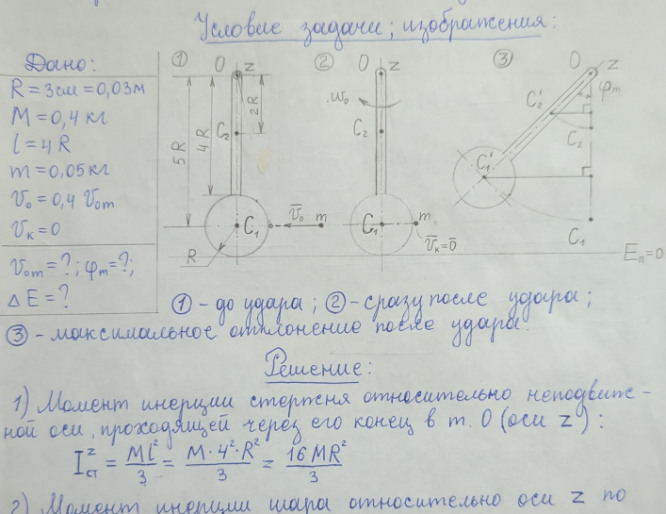 Условие задачи; изображения:
Дано:
R = 3см = 0,03м
M = 0,4 кг
l = 4R
m = 0,05 кг
V₀ = 0,4 V₀ₘ
Vₖ = 0
V₀ₘ = ?; φₘ = ?;
ΔE = ?
① O z
5R 4R 2R
C₂
C₁ V̅₀ m
R
② O z
ω₀
C₂
C₁ m
V̅ₖ = 0̅
③ O z
φₘ
C₂' C₂
C₁'
C₁
Eₙ = 0
① - до удара; ② - сразу после удара;
③ - максимальное отклонение после удара.
Решение:
1) Момент инерции стержня относительно неподвиж-
ной оси, проходящей через его конец в т. О (оси z):
I_ст^z = Ml²/3 = M·4²·R²/3 = 16MR²/3
2) Момент инерции шара относительно оси z по